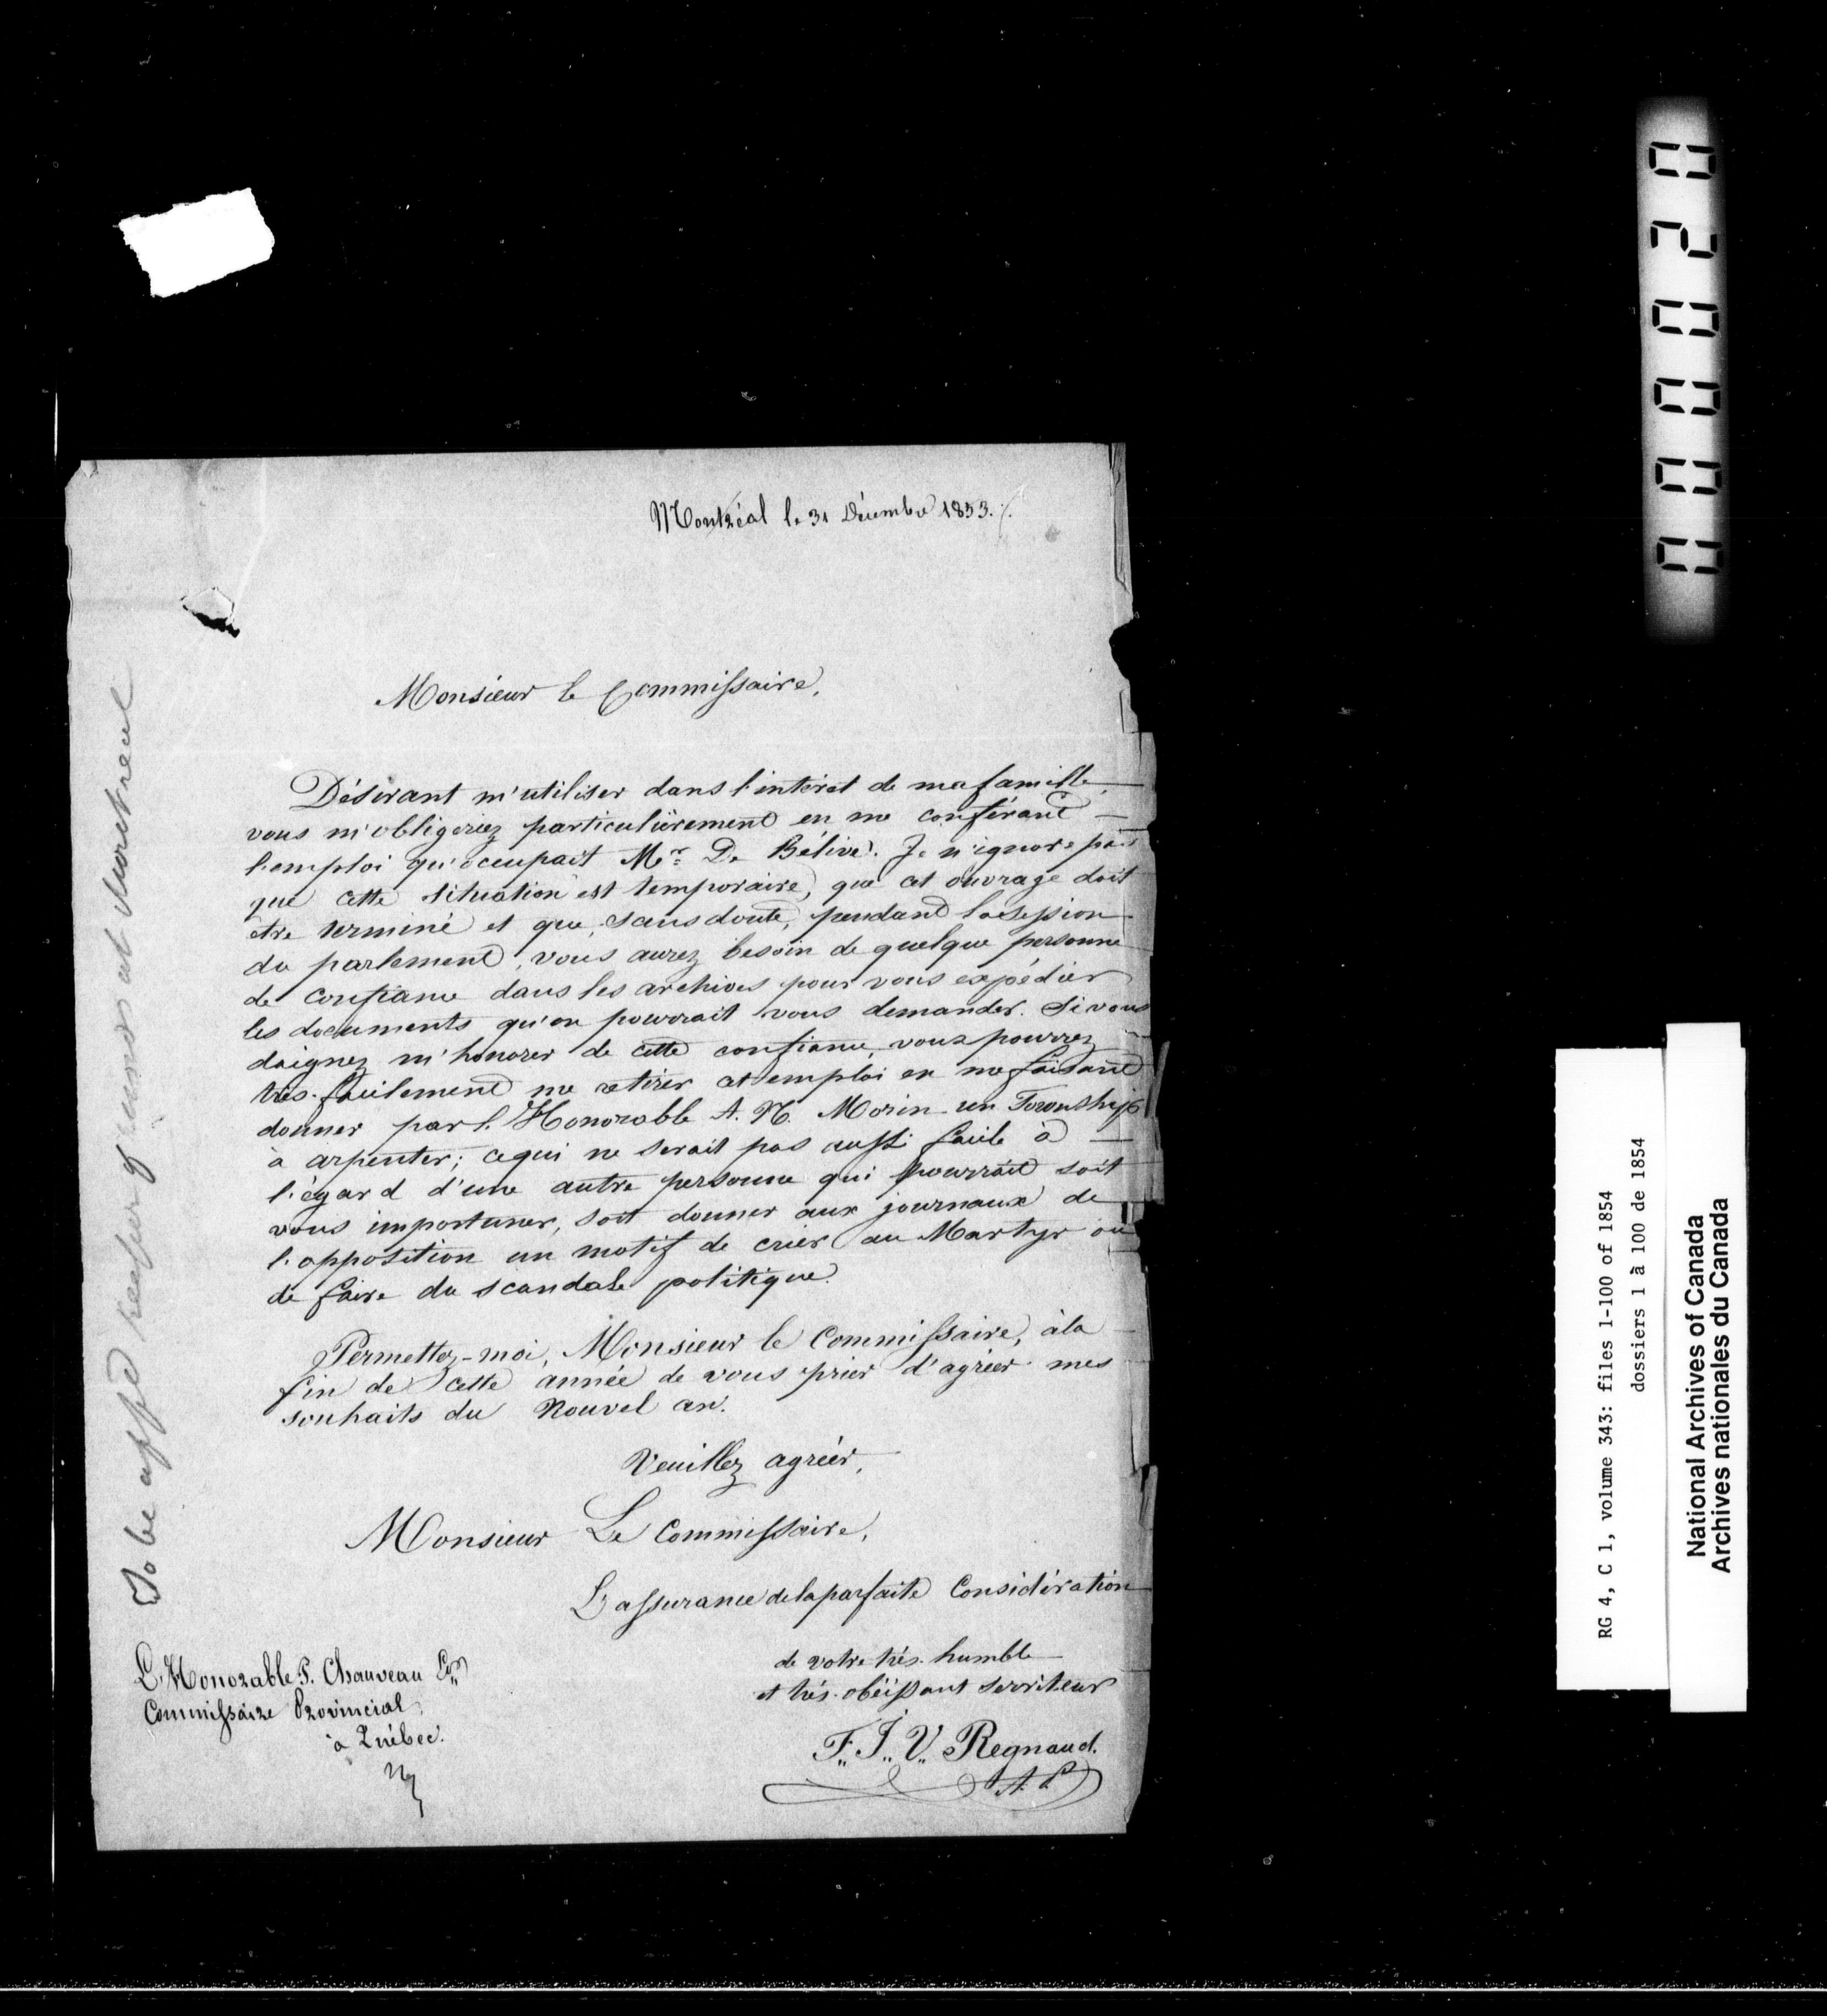 Montréal le 31 Décembre 1853.
Monsieur le Commissaire,
Désirant m'utiliser dans l'intérêt de ma famille,
vous m'obligeriez particulièrement en me conférant
l'emploi qu'occupait Mr. De Bélive. Je n'ignore pas
que cette situation est temporaire, que cet ouvrage doit
etre terminé et que, sans doute, pendant la session
du parlement, vous aurez besoin de quelque personne
de confiance dans les archives pour vous expédier
les documents qu'on pourrait vous demander. Si vous
daignez m'honorer de cette confiance, vous pourrez
très-facilement me retirer cet emploi en me faisant
donner par l'Honorable A. N. Morin un Township
à arpenter; ce qui ne serait pas aussi facile à
l'égard d'une autre personne qui pourrait soit
vous importuner, soit donner aux journaux de
l'opposition un motif de crier au Martyr ou
de faire du scandale politique.
Permettez-moi, Monsieur le Commissaire, à la
fin de cette année de vous prier d'agréer mes
souhaits du Nouvel an.
Veuillez agréer,
Monsieur Le Commissaire,
L'assurance de la parfaite Considération
de votre très-humble
et très-obéissant serviteur
F. J. V. Regnaud.
A. P.
L'Honorable P. Chauveau
Commissaire Provincial,
à Québec.
To be at Montreal
RG 4, C 1, volume 343: files 1-100 of 1854
dossiers 1 à 100 de 1854
National Archives of Canada
Archives nationales du Canada
000020